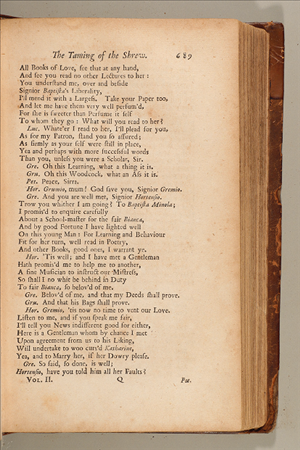 The Taming of the Shrew. 689
All Books of Love, see that at any hand,
And see you read no other Lectures to her:
You understand me, over and beside
Signior Baptista's Liberality,
I'll mend it with a Largess. Take your Paper too,
And let me have them very well perfum'd,
For she is sweeter than Perfume it self
To whom they go: What will you read to her?
Luc. Whate'er I read to her, I'll plead for you,
As for my Patron, stand you so assured;
As firmly as your self were still in place,
Yea and perhaps with more successful words
Than you, unless you were a Scholar, Sir.
Gre. Oh this Learning, what a thing it is.
Gru. Oh this Woodcock, what an Ass it is.
Pet. Peace, Sirra.
Hor. Grumio, mum! God save you, Signior Gremio.
Gre. And you are well met, Signior Hortensio.
Trow you whither I am going? To Baptista Minola;
I promis'd to enquire carefully
About a School-master for the fair Bianca,
And by good Fortune I have lighted well
On this young Man: For Learning and Behaviour
Fit for her turn, well read in Poetry,
And other Books, good ones, I warrant ye.
Hor. 'Tis well; and I have met a Gentleman
Hath promis'd me to help me to another,
A fine Musician to instruct our Mistress,
So shall I no whit be behind in Duty
To fair Bianca, so belov'd of me.
Gre. Belov'd of me, and that my Deeds shall prove.
Gru. And that his Bags shall prove.
Hor. Gremio, 'tis now no time to vent our Love.
Listen to me, and if you speak me fair,
I'll tell you News indifferent good for either,
Here is a Gentleman whom by chance I met
Upon agreement from us to his Liking,
Will undertake to woo curs'd Katharine,
Yea, and to Marry her, if her Dowry please.
Gre. So said, so done, is well;
Hortensio, have you told him all her Faults?
VOL. II. Q Pet.